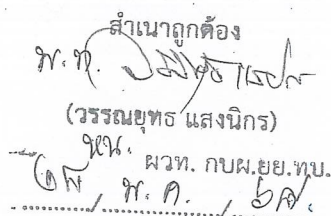 สำเนาถูกต้อง
พ.ท.
(วรรณยุทธ แสงนิกร)
หน. ผวท. กบผ.ยย.ทบ.
พ.ค.